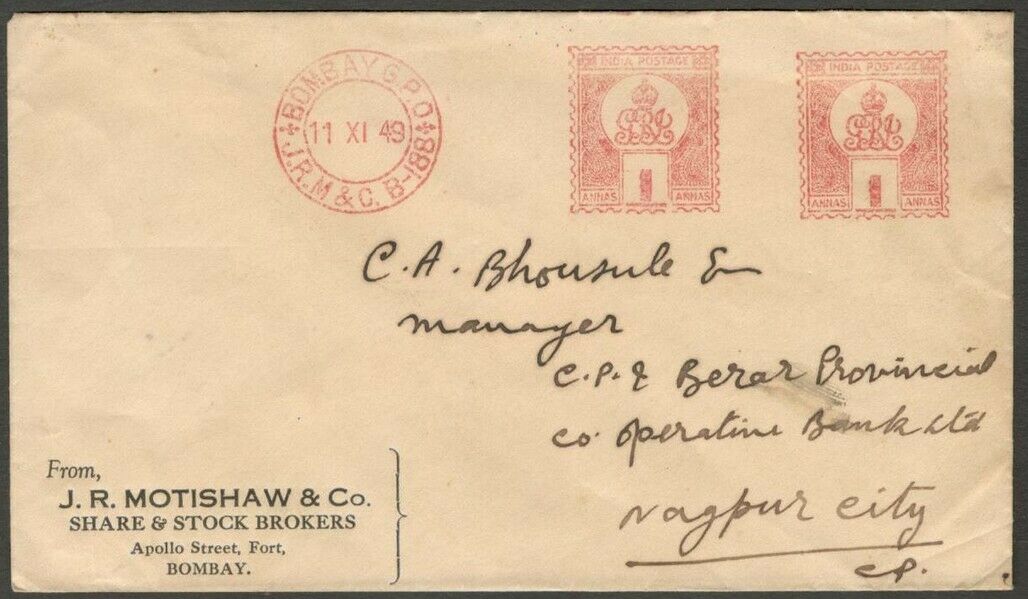 BOMBAY G.P.O
11 XI 49
J.R.M & C. B-188
INDIA POSTAGE
GRI
1
ANNAS ANNAS
INDIA POSTAGE
GRI
1
ANNAS ANNAS
C. A. Bhousule
manager
C. P. & Berar Provincial
Co. operative Bank Ltd
Nagpur City
C.P.
From,
J. R. MOTISHAW & Co.
SHARE & STOCK BROKERS
Apollo Street, Fort,
BOMBAY.